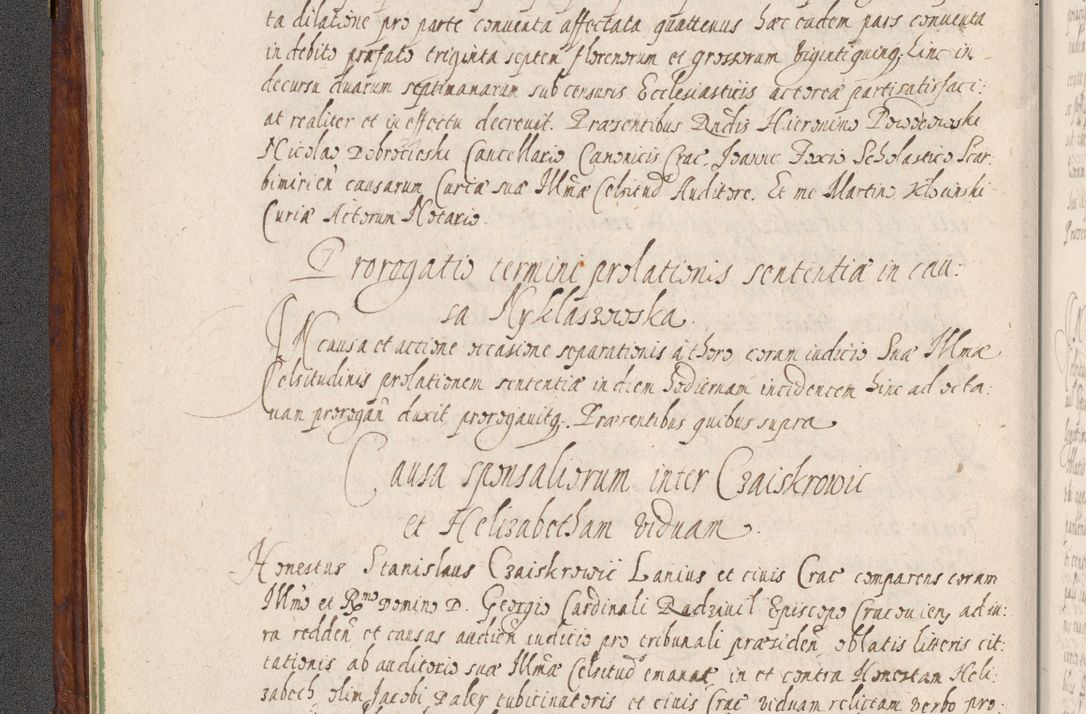 ta dilatione pro parte conventa affectata quattenus hæc eadem pars conventa
in debito præfato triginta septem florenorum et grossorum viginti quinq; hinc in
decursu duarum septimanarum sub censuris Ecclesiasticis actoreæ parti satisfaci:
at realiter et in effectu decrevit. Præsentibus Rndis Hieronimo Powodowski
Nicolao Dobrocieski Cancellario Canonicis Crac. Joanne Foxio Scholastico Scar:
bimirien causarum Curiæ suæ Illmæ Celsitud Auditore. Et me Martino Kłocinski
Curiæ Actorum Notario.
Prorogatio termini prolationis sententiæ in cau:
sa Nyklaszowska
IN causa et actione occasione separationis a thoro coram iudicio Suæ Illmæ
Celsitudinis prolationem sententiæ in diem hodiernam incidentem hinc ad octa:
uan prorogan duxit prorogauitq;. Præsentibus quibus supra
Causa sponsaliorum inter Czaiskrowic
et Helizabetham viduam.
Honestus Stanislaus Czaiskrowic Lanius et ciuis Crac comparens coram
Illmo et Rmo Domino D. Georgio Cardinali Radziuil Episcopo Cracouien, ad iu:
ra redden et causas audien iudicio pro tribunali præsiden oblatis litteris cit:
tationis ab auditorio suæ Illmæ Celsitud emanat in et contra Honestam Heli:
zabeth olim Jacobi Paley tubicinatoris et ciuis Crac viduam relictam verbo pro: